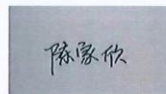 陈家欣